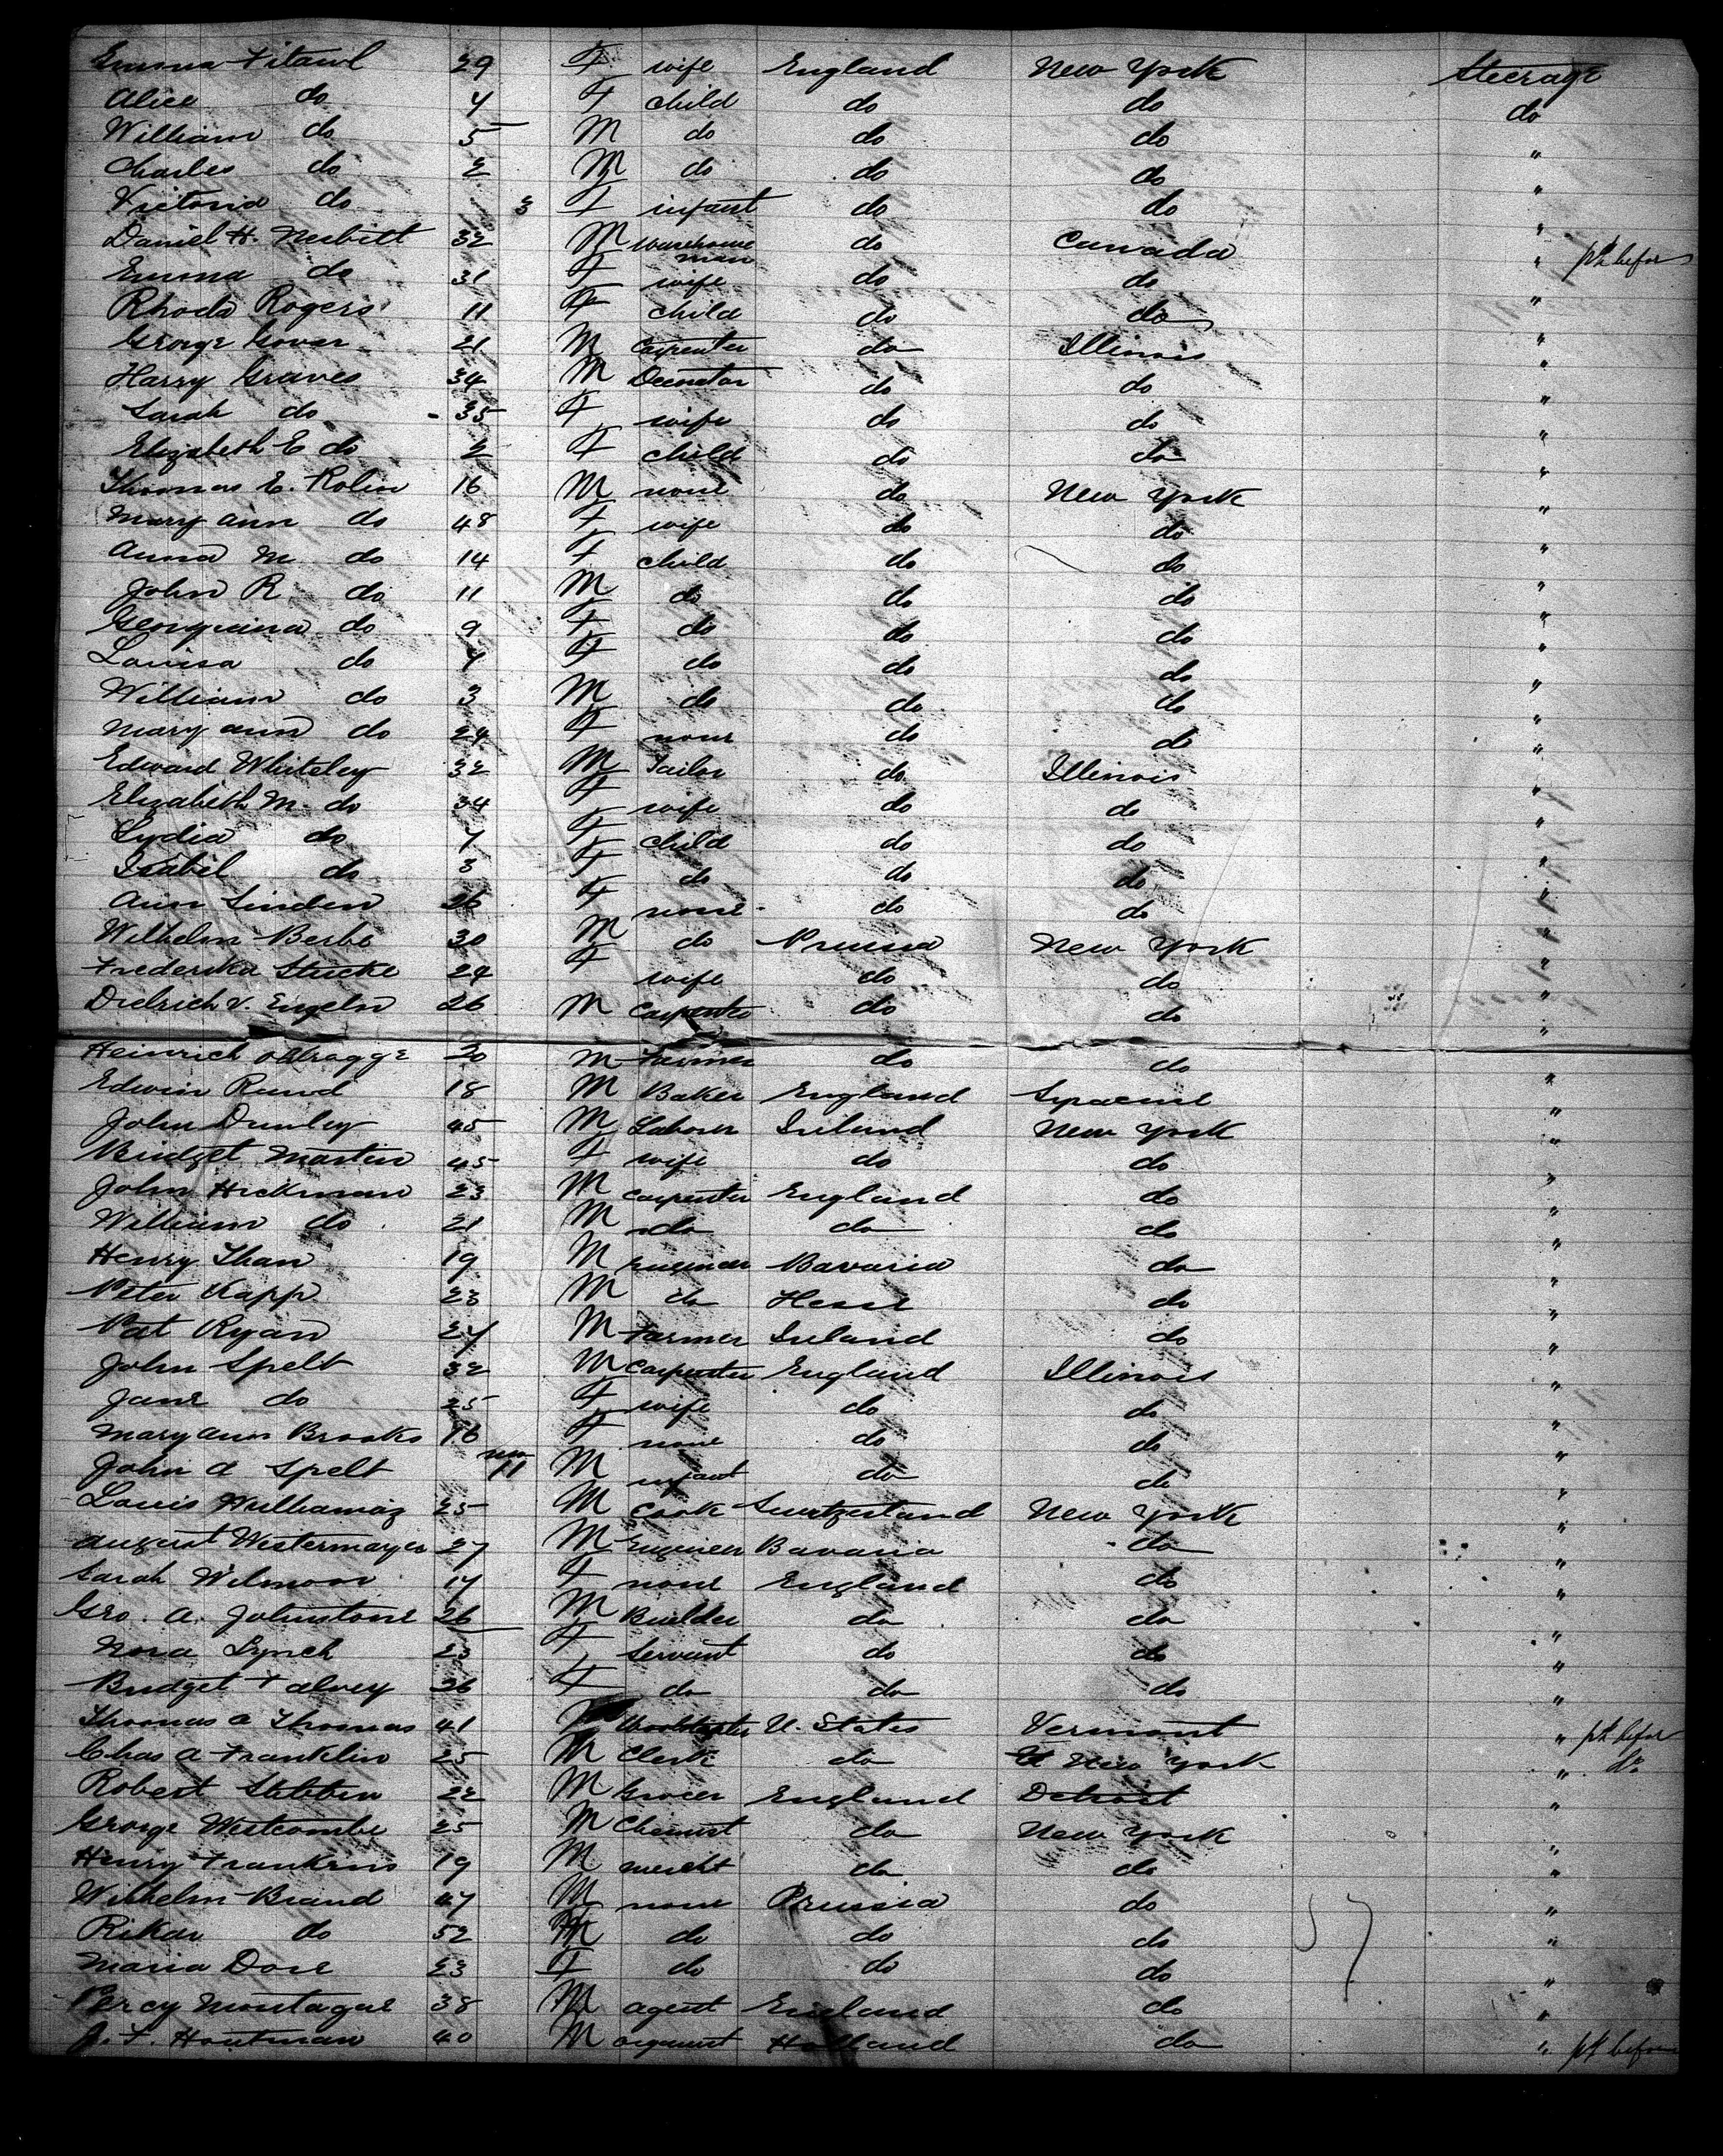 Emma 29 F wife England New York Steerage
Alice do 4 F child do do do
William do 5 M do do do "
Charles do 2 M do do do "
Victoria do 3 F infant do do "
Daniel H. Nesbitt 32 M warehouse man do Canada " pt. before
Emma do 31 F wife do do "
Rhoda Rogers 11 F child do do "
George Gover 21 M Carpenter do Illinois "
Harry Graves 34 M Decorator do do "
Sarah do 35 F wife do do "
Elizabeth E do 2 F child do do "
Thomas E. Robin 16 M none do New York "
Mary ann do 48 F wife do do "
Anna M do 14 F child do do "
John R do 11 M do do do "
Georgiana do 9 F do do do "
Louisa do 7 F do do do "
William do 3 M do do do "
Mary ann do 24 F none do do "
Edward Whiteley 32 M Tailor do Illinois "
Elizabeth M. do 34 F wife do do "
Lydia do 7 F child do do "
Isabel do 3 F do do do "
Ann Linden 26 F none do do "
Wilhelm Berbe 30 M do Prussia New York "
Frederika Stucke 24 F wife do do "
Dietrich v. Engeln 26 M Carpenter do do "
Heinrich 20 M Farmer do do "
Edwin Rund 18 M Baker England Syracuse "
John Dunley 45 M Laborer Ireland New York "
Bridget Martin 45 F wife do do "
John Hickman 23 M carpenter England do "
William do 21 M do do do "
Henry Than 19 M Engineer Bavaria do "
Peter Kapp 23 M do Hesse do "
Pat Ryan 27 M Farmer Ireland do "
John Spelt 32 M Carpenter England Illinois "
Jane do 25 F wife do do "
Mary ann Brooks 16 F none do do "
John A Spelt 11 M infant do do "
Louis 25 M Cook Switzerland New York "
August Westermayer 27 M Engineer Bavaria do "
Sarah 17 F none England do "
Geo. A. Johnstone 26 M Builder do do "
Nora Lynch 23 F Servant do do "
Bridget Falvey 26 F do do do "
Thomas A Thomas 41 M U. States Vermont " pt. before
Chas A Franklin 25 M Clerk do New York " do
Robert Stebben 22 M Grocer England Detroit "
George Westcombe 25 M Chemist do New York "
Henry 19 M mercht do do "
Wilhelm Brand 47 M none Prussia do "
Rikar do 52 M do do do "
Maria Dose 23 F do do do "
Percy Montague 38 M agent England do "
J. F. Houtman 40 M organist Holland do " pt before
57